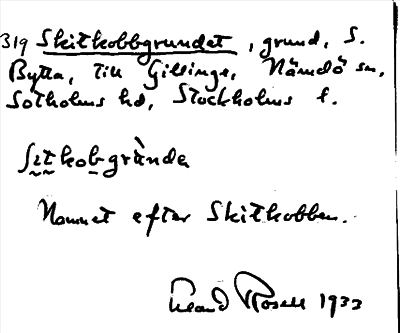 319 Skitkobbgrundet, grund, S.
Bytta, till Gillinge, Nämdö sn,
Sotholms hd, Stockholms l.
ſitkobgrùndɐ
Namnet efter Skitkobben.
Rosell 1933